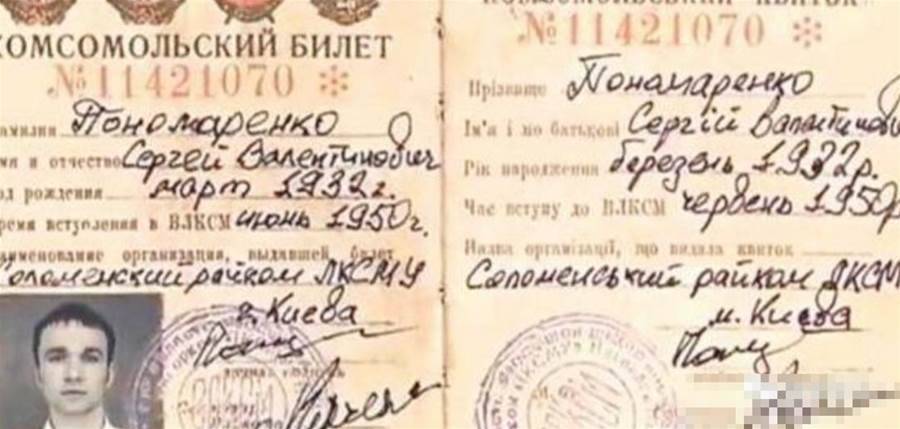 КОМСОМОЛЬСКИЙ БИЛЕТ
№11421070
фамилия Пономаренко
имя и отчество Сергей Валентинович
год рождения март 1932 г.
время вступления в ВЛКСМ июнь 1950г.
наименование организации, выдавшей билет
Соломенский райком ЛКСМУ
г. Киева
КОМСОМОЛЬСЬКИЙ КВИТОК
№11421070
Прізвище Пономаренко
Ім'я і по батькові Сергій Валентинович
Рік народження березень 1932р.
Час вступу до ВЛКСМ червень 1950р
Назва організації, що видала квиток
Соломенський райком ЛКСМ
м. Києва